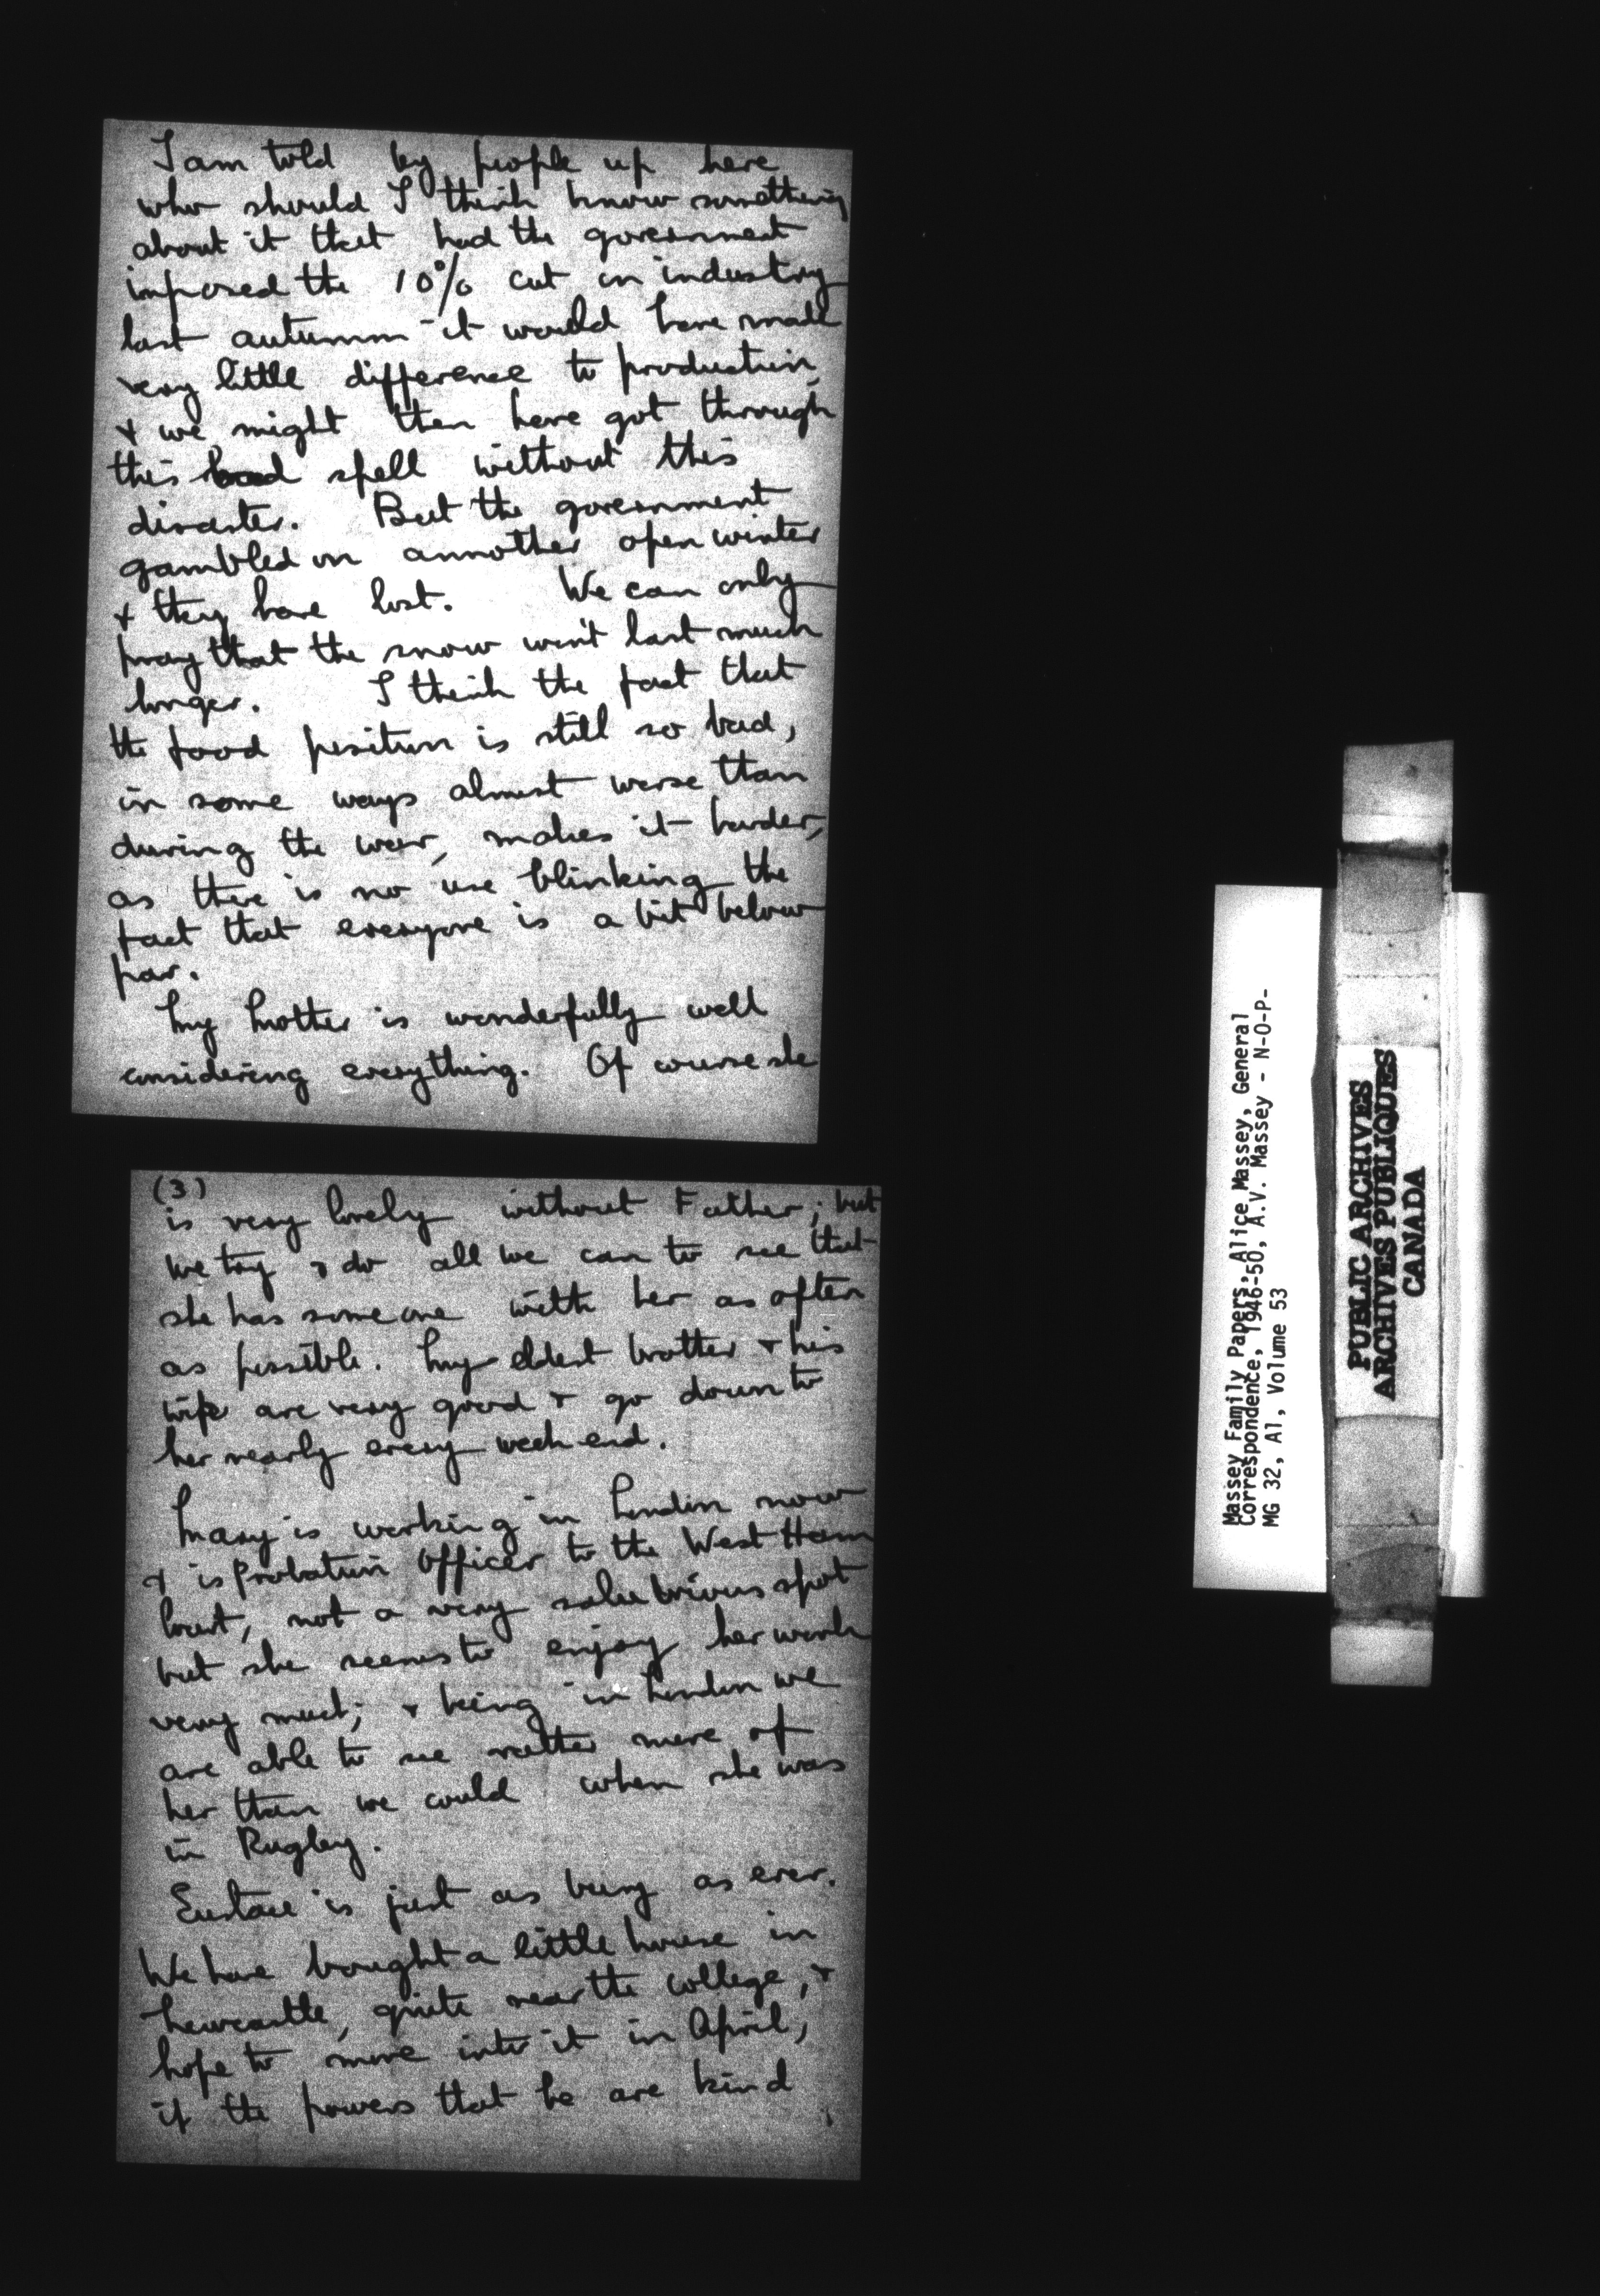 I am told by people up here
who should I think know something
about it that had the government
imposed the 10% cut on industry
last autumn it would have made
very little difference to production,
& we might then have got through
this bad spell without this
disaster. But the government
gambled on annother open winter
& they have lost. We can only
pray that the snow won't last much
longer. I think the fact that
the food position is still so bad,
in some ways almost worse than
during the war, makes it harder,
as there is no use blinking the
fact that everyone is a bit below
par.
My Mother is wonderfully well
considering everything. Of course she
(3)
is very lonely without Father; but
we try & do all we can to see that
she has someone with her as often
as possible. My eldest brother & his
wife are very good & go down to
her nearly every week-end.
Mary is working in London now
& is Probation Officer to the West Ham
Court, not a very salubrious spot
but she seems to enjoy her work
very much; & being in London we
are able to see rather more of
her than we could when she was
in Rugby.
Eustace is just as busy as ever.
We have bought a little house in
Newcastle, quite near the college, &
hope to move into it in April,
if the powers that be are kind
Massey Family Papers, Alice Massey, General
Correspondence, 1946-50, A.V. Massey - N-O-P-
MG 32, A1, Volume 53
PUBLIC ARCHIVES
ARCHIVES PUBLIQUES
CANADA